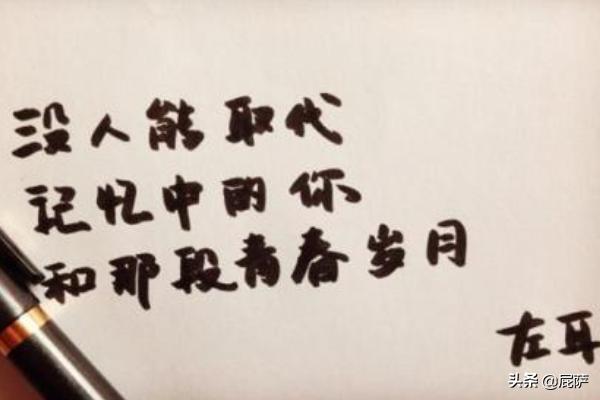 没人能取代
记忆中的你
和那段青春岁月
左耳
头条 @屁萨